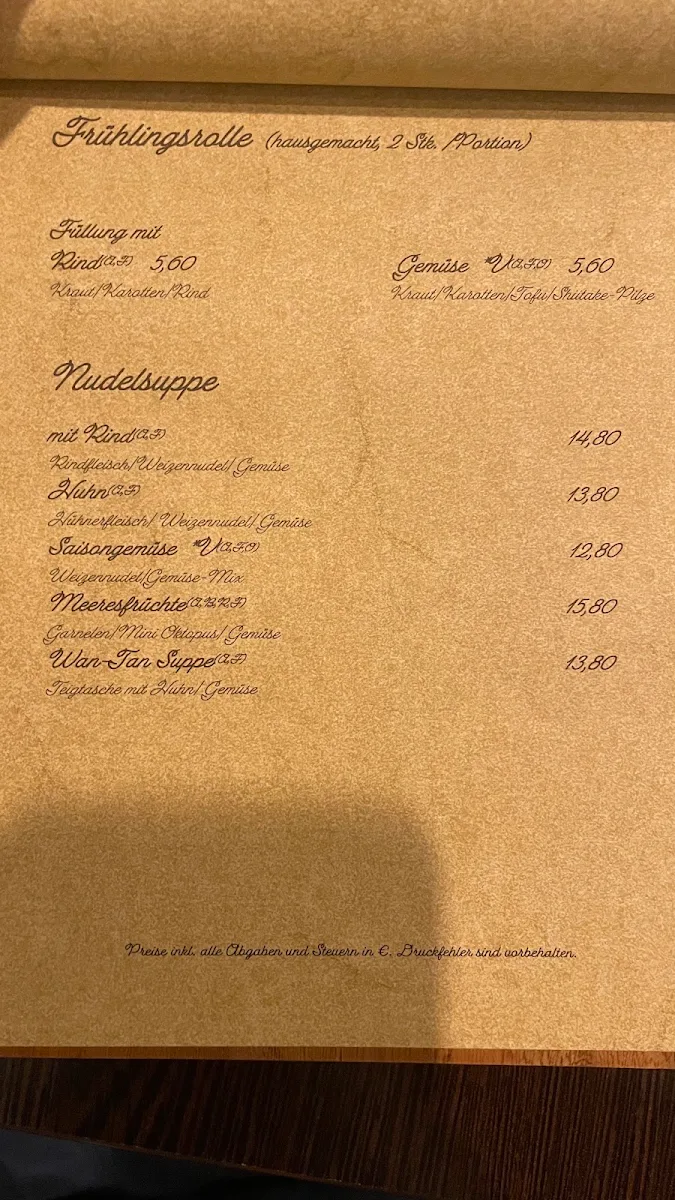 Frühlingsrolle (hausgemacht, 2 Stk. /Portion)
Füllung mit
Rind(A,F) 5,60
Kraut/Karotten/Rind
Gemüse *V(A,F,O) 5,60
Kraut/Karotten/Tofu/Shiitake-Pilze
Nudelsuppe
mit Rind(A,F) 14,80
Rindfleisch/Weizennudel/ Gemüse
Huhn(A,F) 13,80
Hühnerfleisch/ Weizennudel/ Gemüse
Saisongemüse *V(A,F,O) 12,80
Weizennudel/Gemüse-Mix
Meeresfrüchte(A,B,R,F) 15,80
Garnelen/Mini Oktopus/ Gemüse
Wan-Tan Suppe(A,F) 13,80
Teigtasche mit Huhn/ Gemüse
Preise inkl. alle Abgaben und Steuern in €. Druckfehler sind vorbehalten.